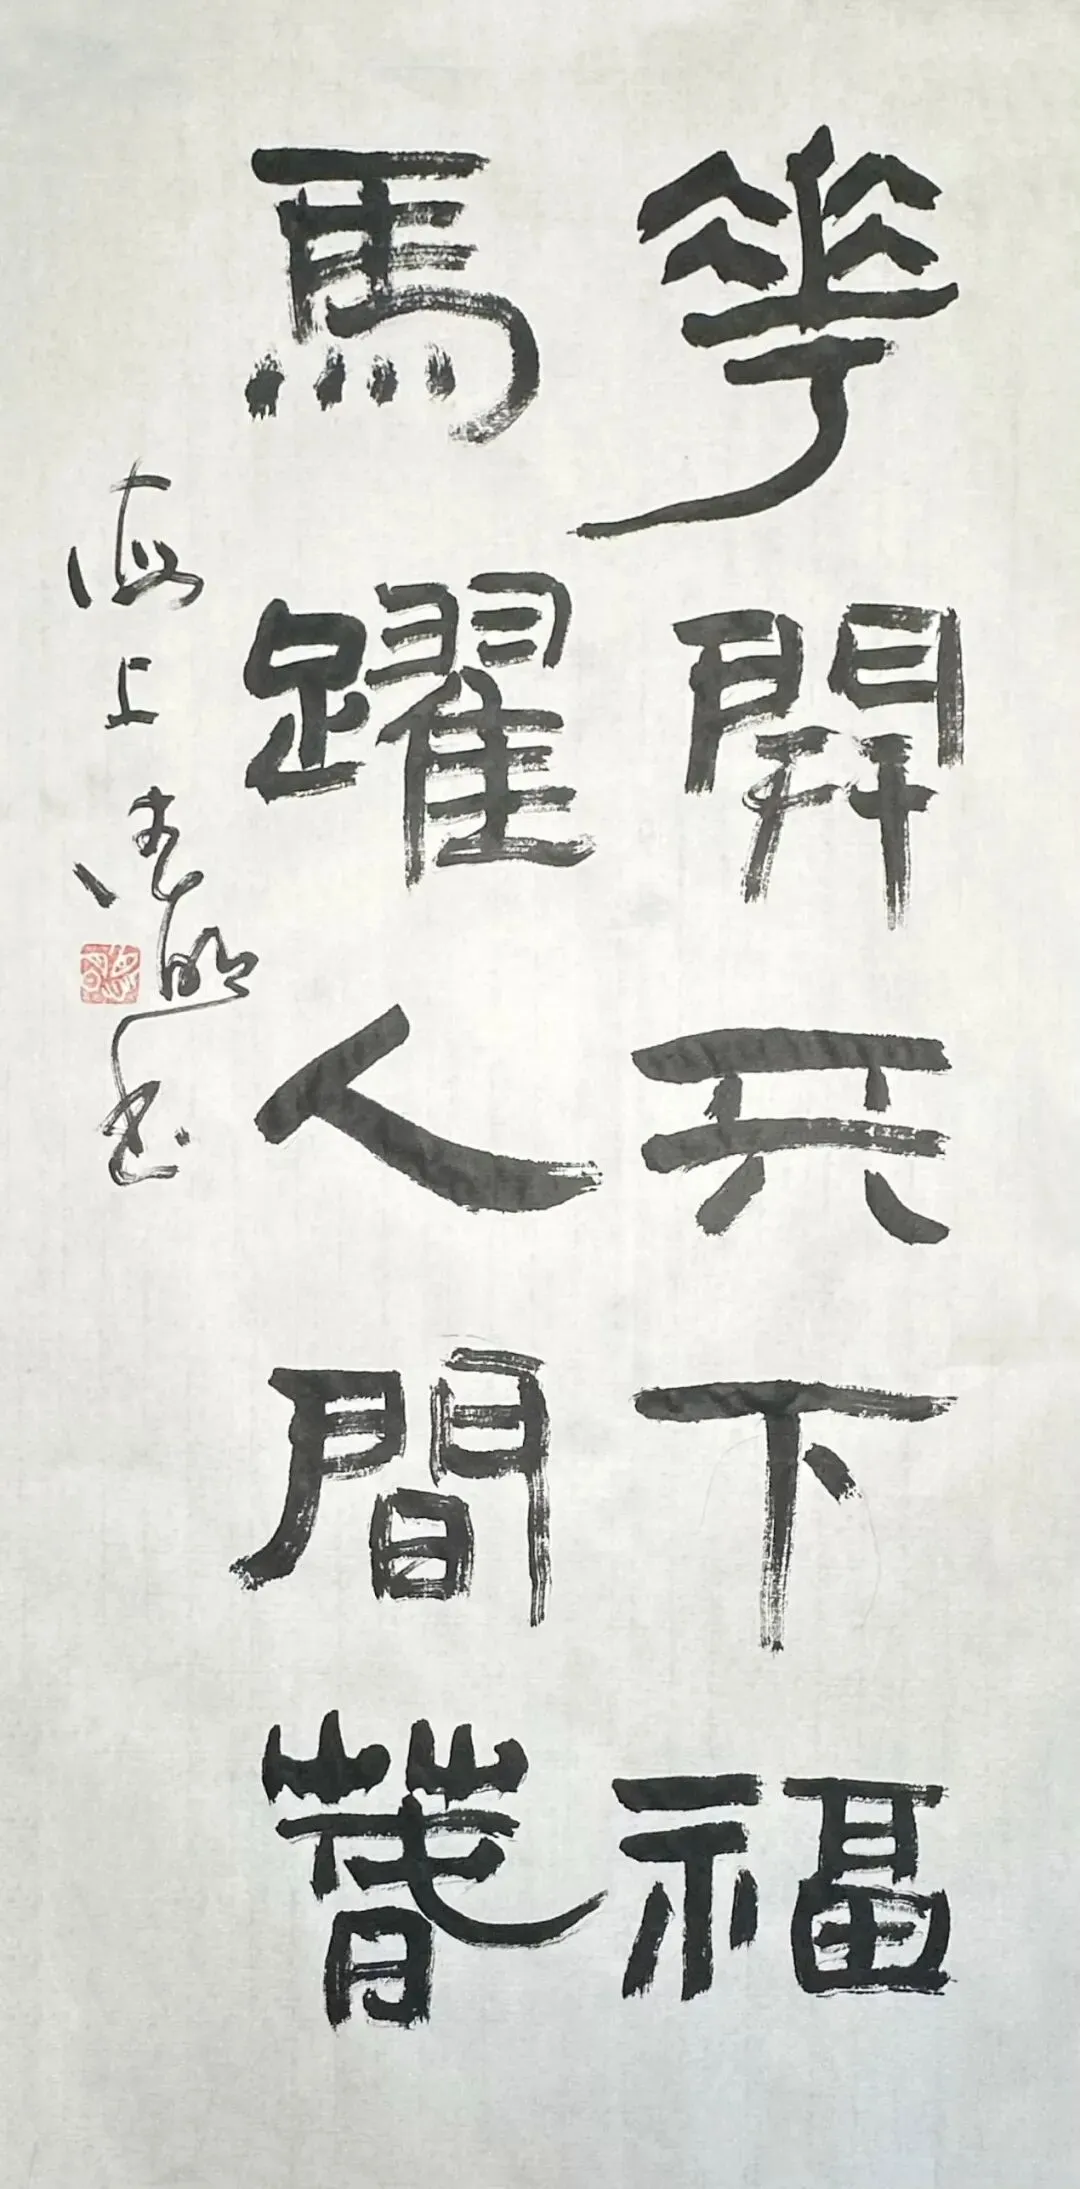 華開天下福
馬躍人間春
海上
書